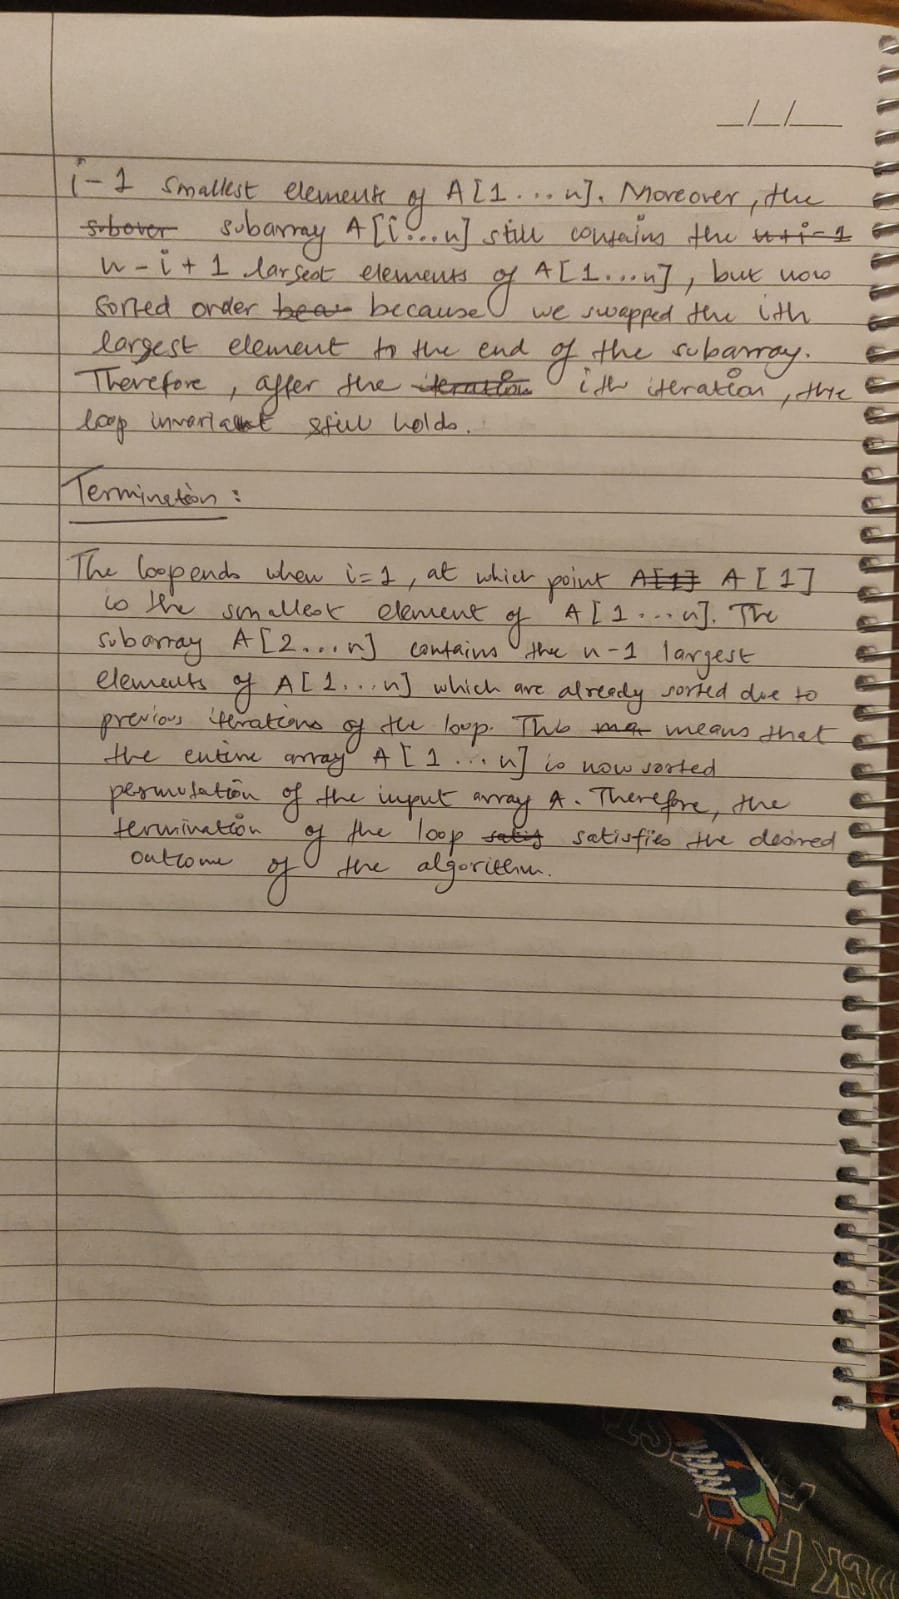 _/_/_
i-1 smallest elements of A[1...n]. Moreover, the
subarray A[i...n] still contains the n+i-1
n-i+1 largest elements of A[1...n], but now
sorted order because we swapped the ith
largest element to the end of the subarray.
Therefore, after the iteration ith iteration, the
loop invariant still holds.
Termination:
The loop ends when i=1, at which point A[1] A[1]
is the smallest element of A[1...n]. The
subarray A[2...n] contains the n-1 largest
elements of A[1...n] which are already sorted due to
previous iterations of the loop. This means that
the entire array A[1...n] is now sorted
permutation of the input array A. Therefore, the
termination of the loop satis satisfies the desired
outcome of the algorithm.